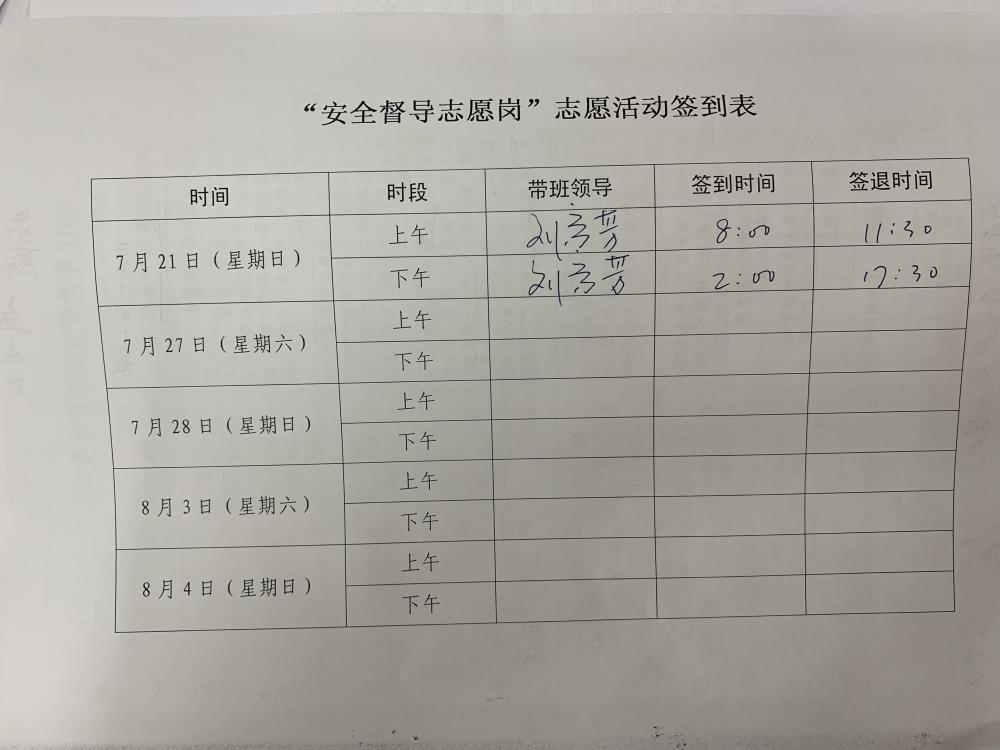 “安全督导志愿岗”志愿活动签到表
时间 时段 带班领导 签到时间 签退时间
7月21日（星期日） 上午 8:00 11:30
下午 2:00 17:30
7月27日（星期六） 上午
下午
7月28日（星期日） 上午
下午
8月3日（星期六） 上午
下午
8月4日（星期日） 上午
下午